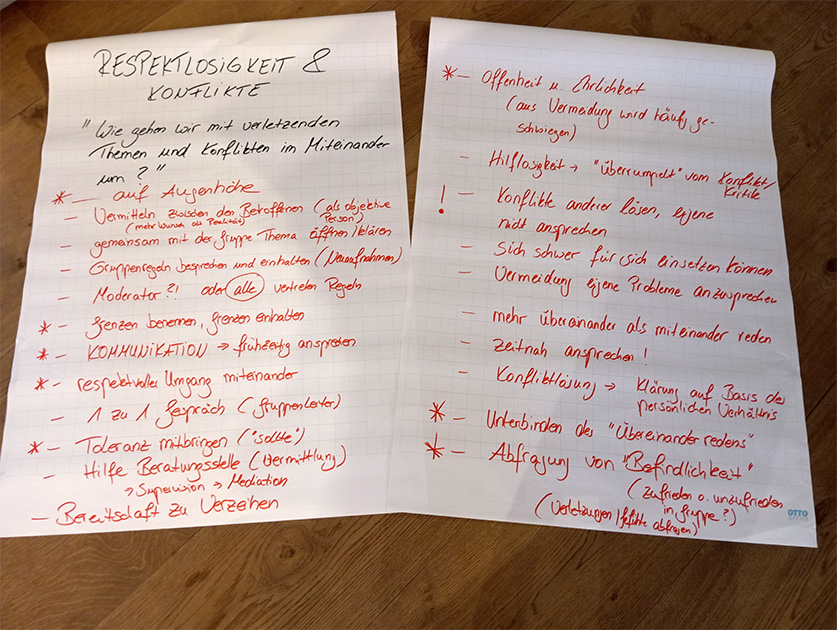 RESPEKTLOSIGKEIT &
KONFLIKTE
"Wie gehen wir mit verletzenden
Themen und Konflikten im Miteinander
um?"
* — auf Augenhöhe
– Vermitteln zwischen den Betroffenen (als objektive
Person)
(mehr Wunsch als Realität)
– gemeinsam mit der Gruppe Thema öffnen/klären
– Gruppenregeln besprechen und einhalten (Neuaufnahmen)
– Moderator?! oder alle vertreten Regeln
* – Grenzen benennen, Grenzen einhalten
* – KOMMUNIKATION → frühzeitig ansprechen
* – respektvoller Umgang miteinander
– 1 zu 1 Gespräch (Gruppenleiter)
* – Toleranz mitbringen ("sollte")
– Hilfe Beratungsstelle (Vermittlung)
→ Supervision → Mediation
– Bereitschaft zu Verzeihen
* – Offenheit u. Ehrlichkeit
(aus Vermeidung wird häufig ge-
schwiegen)
– Hilflosigkeit → "überrumpelt" vom Konflikt/
Kritik
! – Konflikte anderer lösen, eigene
nicht ansprechen
– Sich schwer für sich einsetzen können
– Vermeidung eigene Probleme anzusprechen
– mehr übereinander als miteinander reden
– zeitnah ansprechen!
– Konfliktlösung → Klärung auf Basis des
persönlichen Verhältnis
* – Unterbinden des "Übereinander redens"
* – Abfragung von "Befindlichkeit"
(zufrieden o. unzufrieden
in Gruppe?)
(Verletzungen/Gefühle abfragen)
OTTO
OFFICE